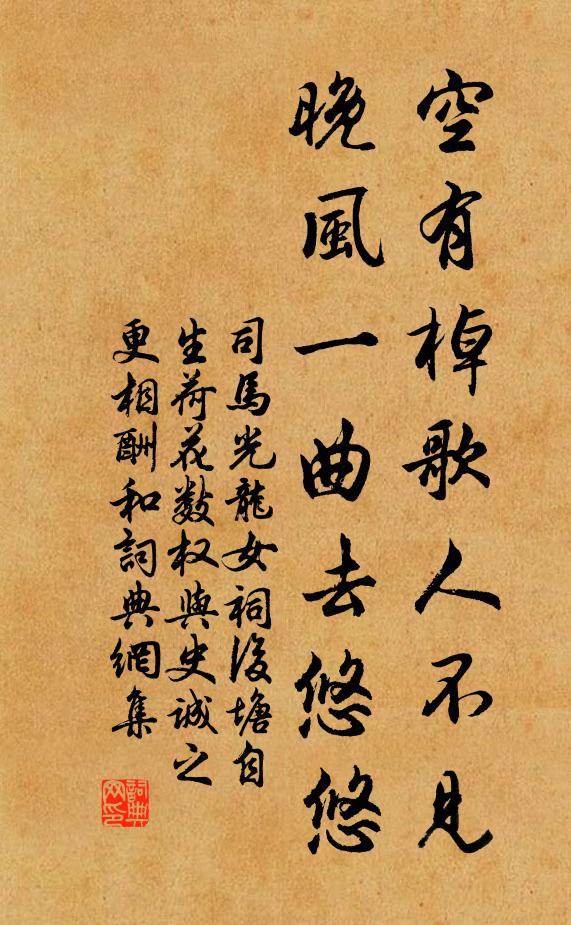 空有棹歌人不見
晚風一曲去悠悠
司馬光龍女祠後塘自
生荷花數枝與史誠之
更相酬和詞典網集
詞典网印